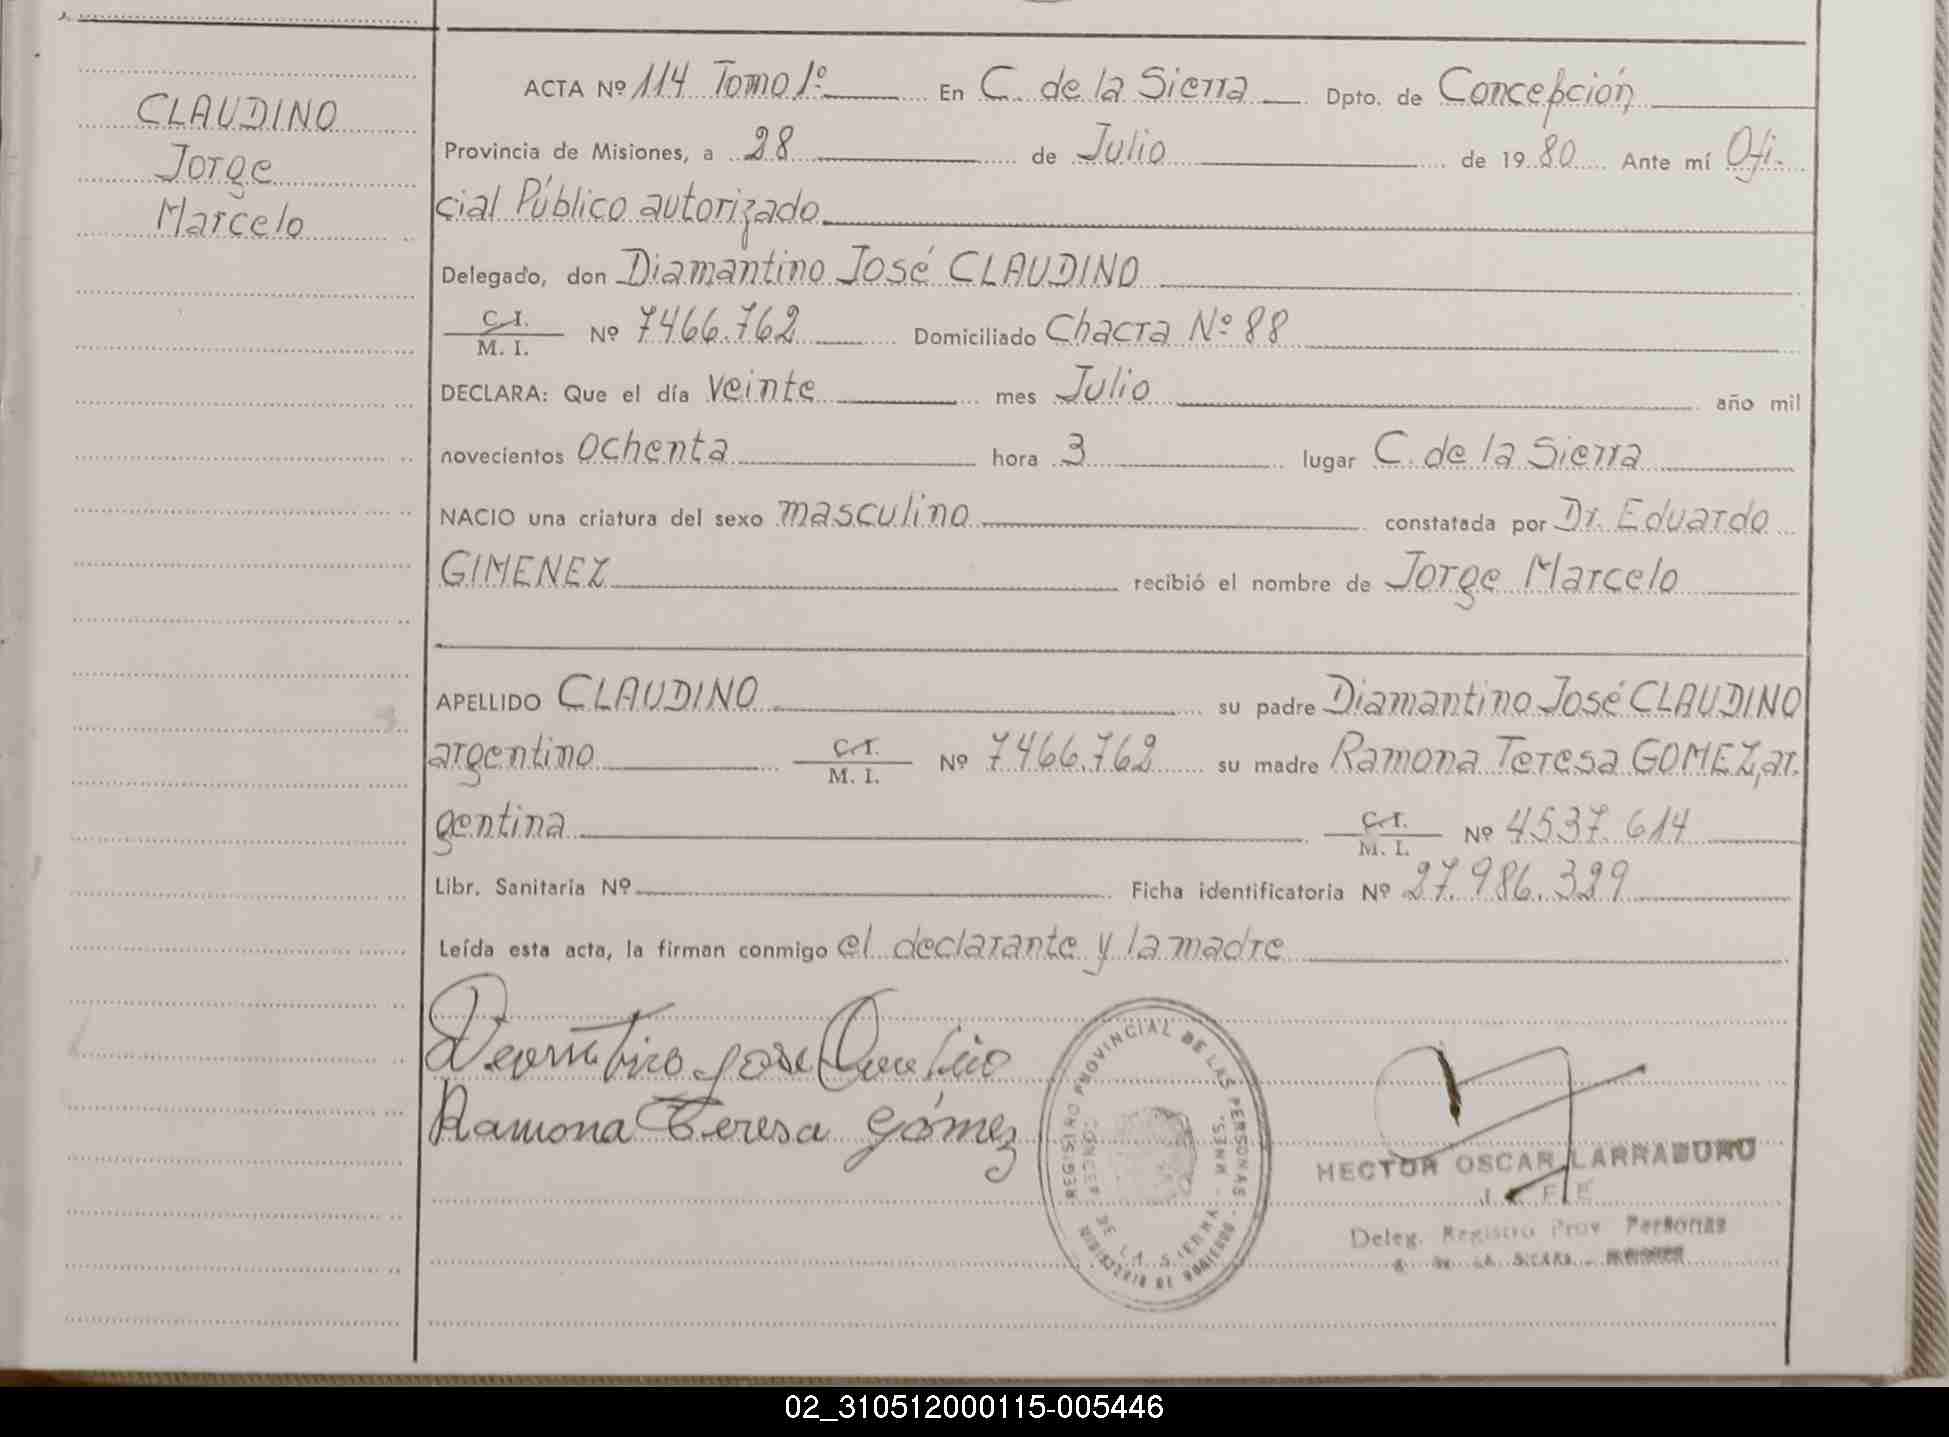 CLAUDINO
Jorge
Marcelo
ACTA Nº 114 Tomo 1º En C. de la Sierra Dpto. de Concepción
Provincia de Misiones, a 28 de Julio de 1980 Ante mí Ofi-
cial Público autorizado
Delegado, don Diamantino José CLAUDINO
C. I.
M. I. Nº 7466.762 Domiciliado Chacra Nº 88
DECLARA: Que el día veinte mes Julio año mil
novecientos ochenta hora 3 lugar C. de la Sierra
NACIO una criatura del sexo masculino constatada por Dr. Eduardo
GIMENEZ recibió el nombre de Jorge Marcelo
APELLIDO CLAUDINO su padre Diamantino José CLAUDINO
argentino C. I.
M. I. Nº 7466.762 su madre Ramona Teresa GOMEZ, ar-
gentina C. I.
M. I. Nº 4537.614
Libr. Sanitaria Nº Ficha identificatoria Nº 27.986.329
Leída esta acta, la firman conmigo el declarante y la madre
Jose
Ramona Teresa Gómez
REGISTRO PROVINCIAL DE LAS PERSONAS
MINISTERIO DE GOBIERNO
DE LA SIERRA
HECTOR OSCAR LARRABURO
Deleg. Registro Prov. Personas
DE LA SIERRA
02_310512000115-005446